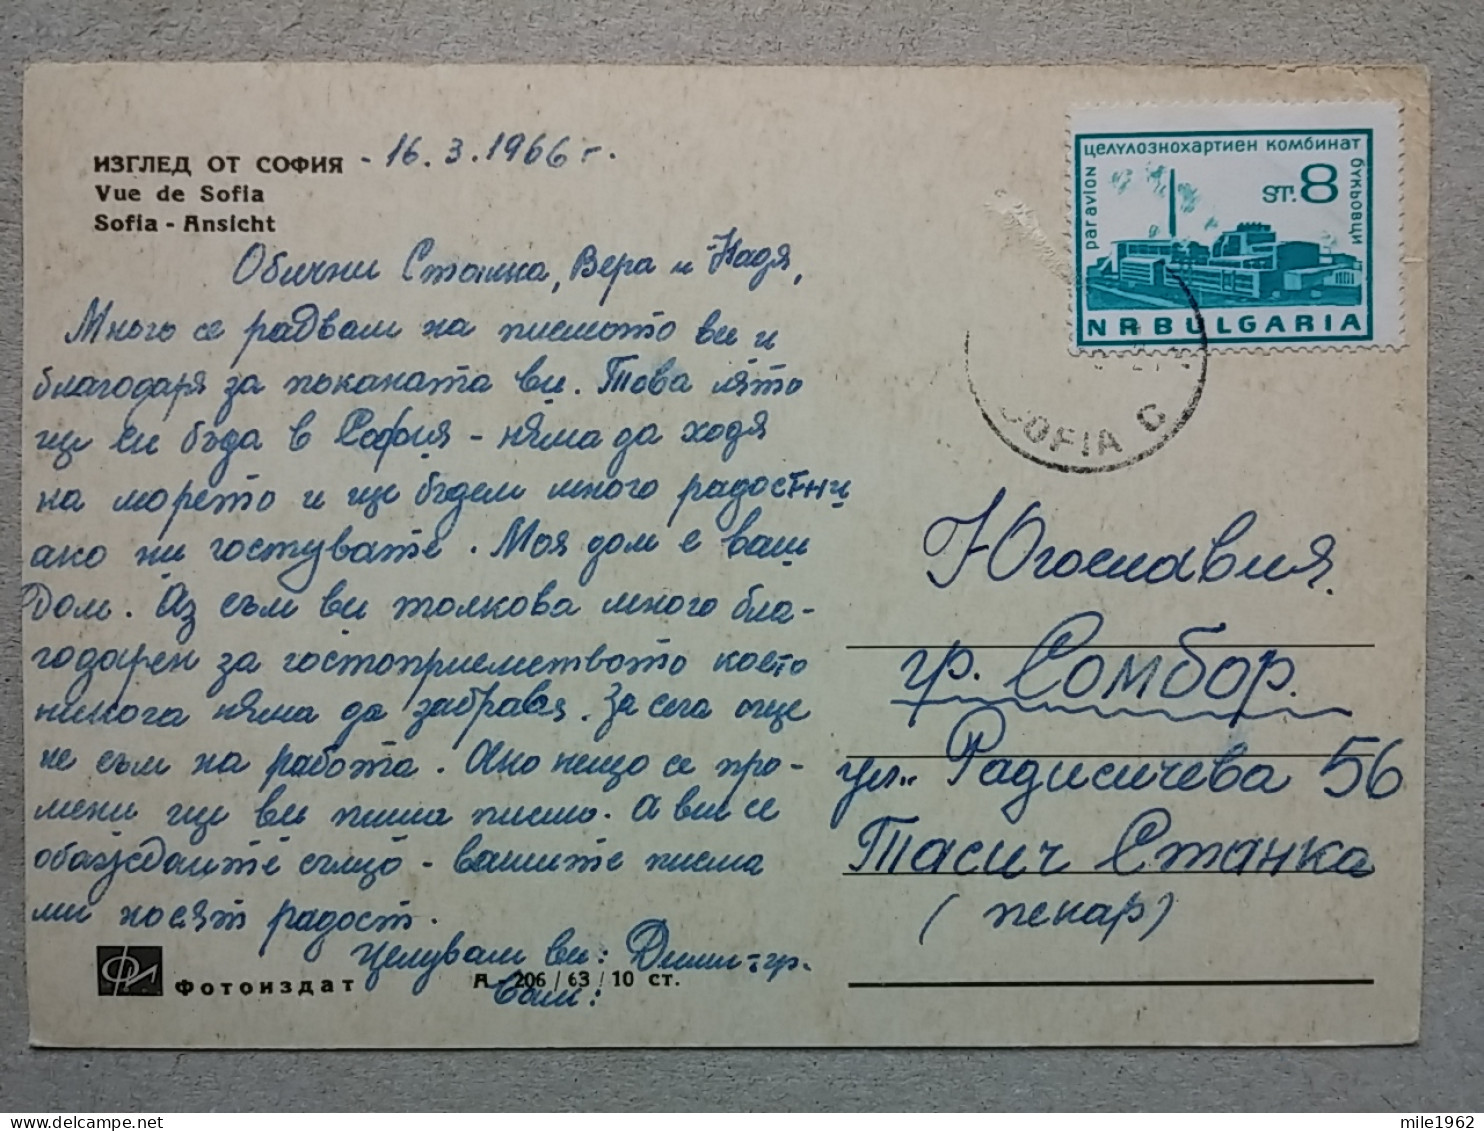 ИЗГЛЕД ОТ СОФИЯ - 16.3.1966 г.
Vue de Sofia
Sofia - Ansicht
Обични Станка, Вера и Надя,
Много се радвам на писмото ви и
благодаря за поканата ви. Това лято
ще си бъда в София - няма да ходя
на морето и ще бъдем много радостни
ако ни гостувате. Моя дом е ваш
Дом. Аз съм ви толкова много бла-
годарен за гостоприемството което
никога няма да забравя. За сега още
не съм на работа. Ако нещо се про-
мени ще ви пиша писмо. А вие се
обаждайте също - вашите писма
ми носят радост.
Целувам ви:
Фотоиздат
А 206/63/10 ст.
paravion
ЦЕЛУЛОЗНОХАРТИЕН КОМБИНАТ
БУКЬОВЦИ
ST. 8
NRBULGARIA
SOFIA C
Югославия.
гр. Сомбор.
ул. Радисичева 56
Тасич Станка
(пекар)
mile1962